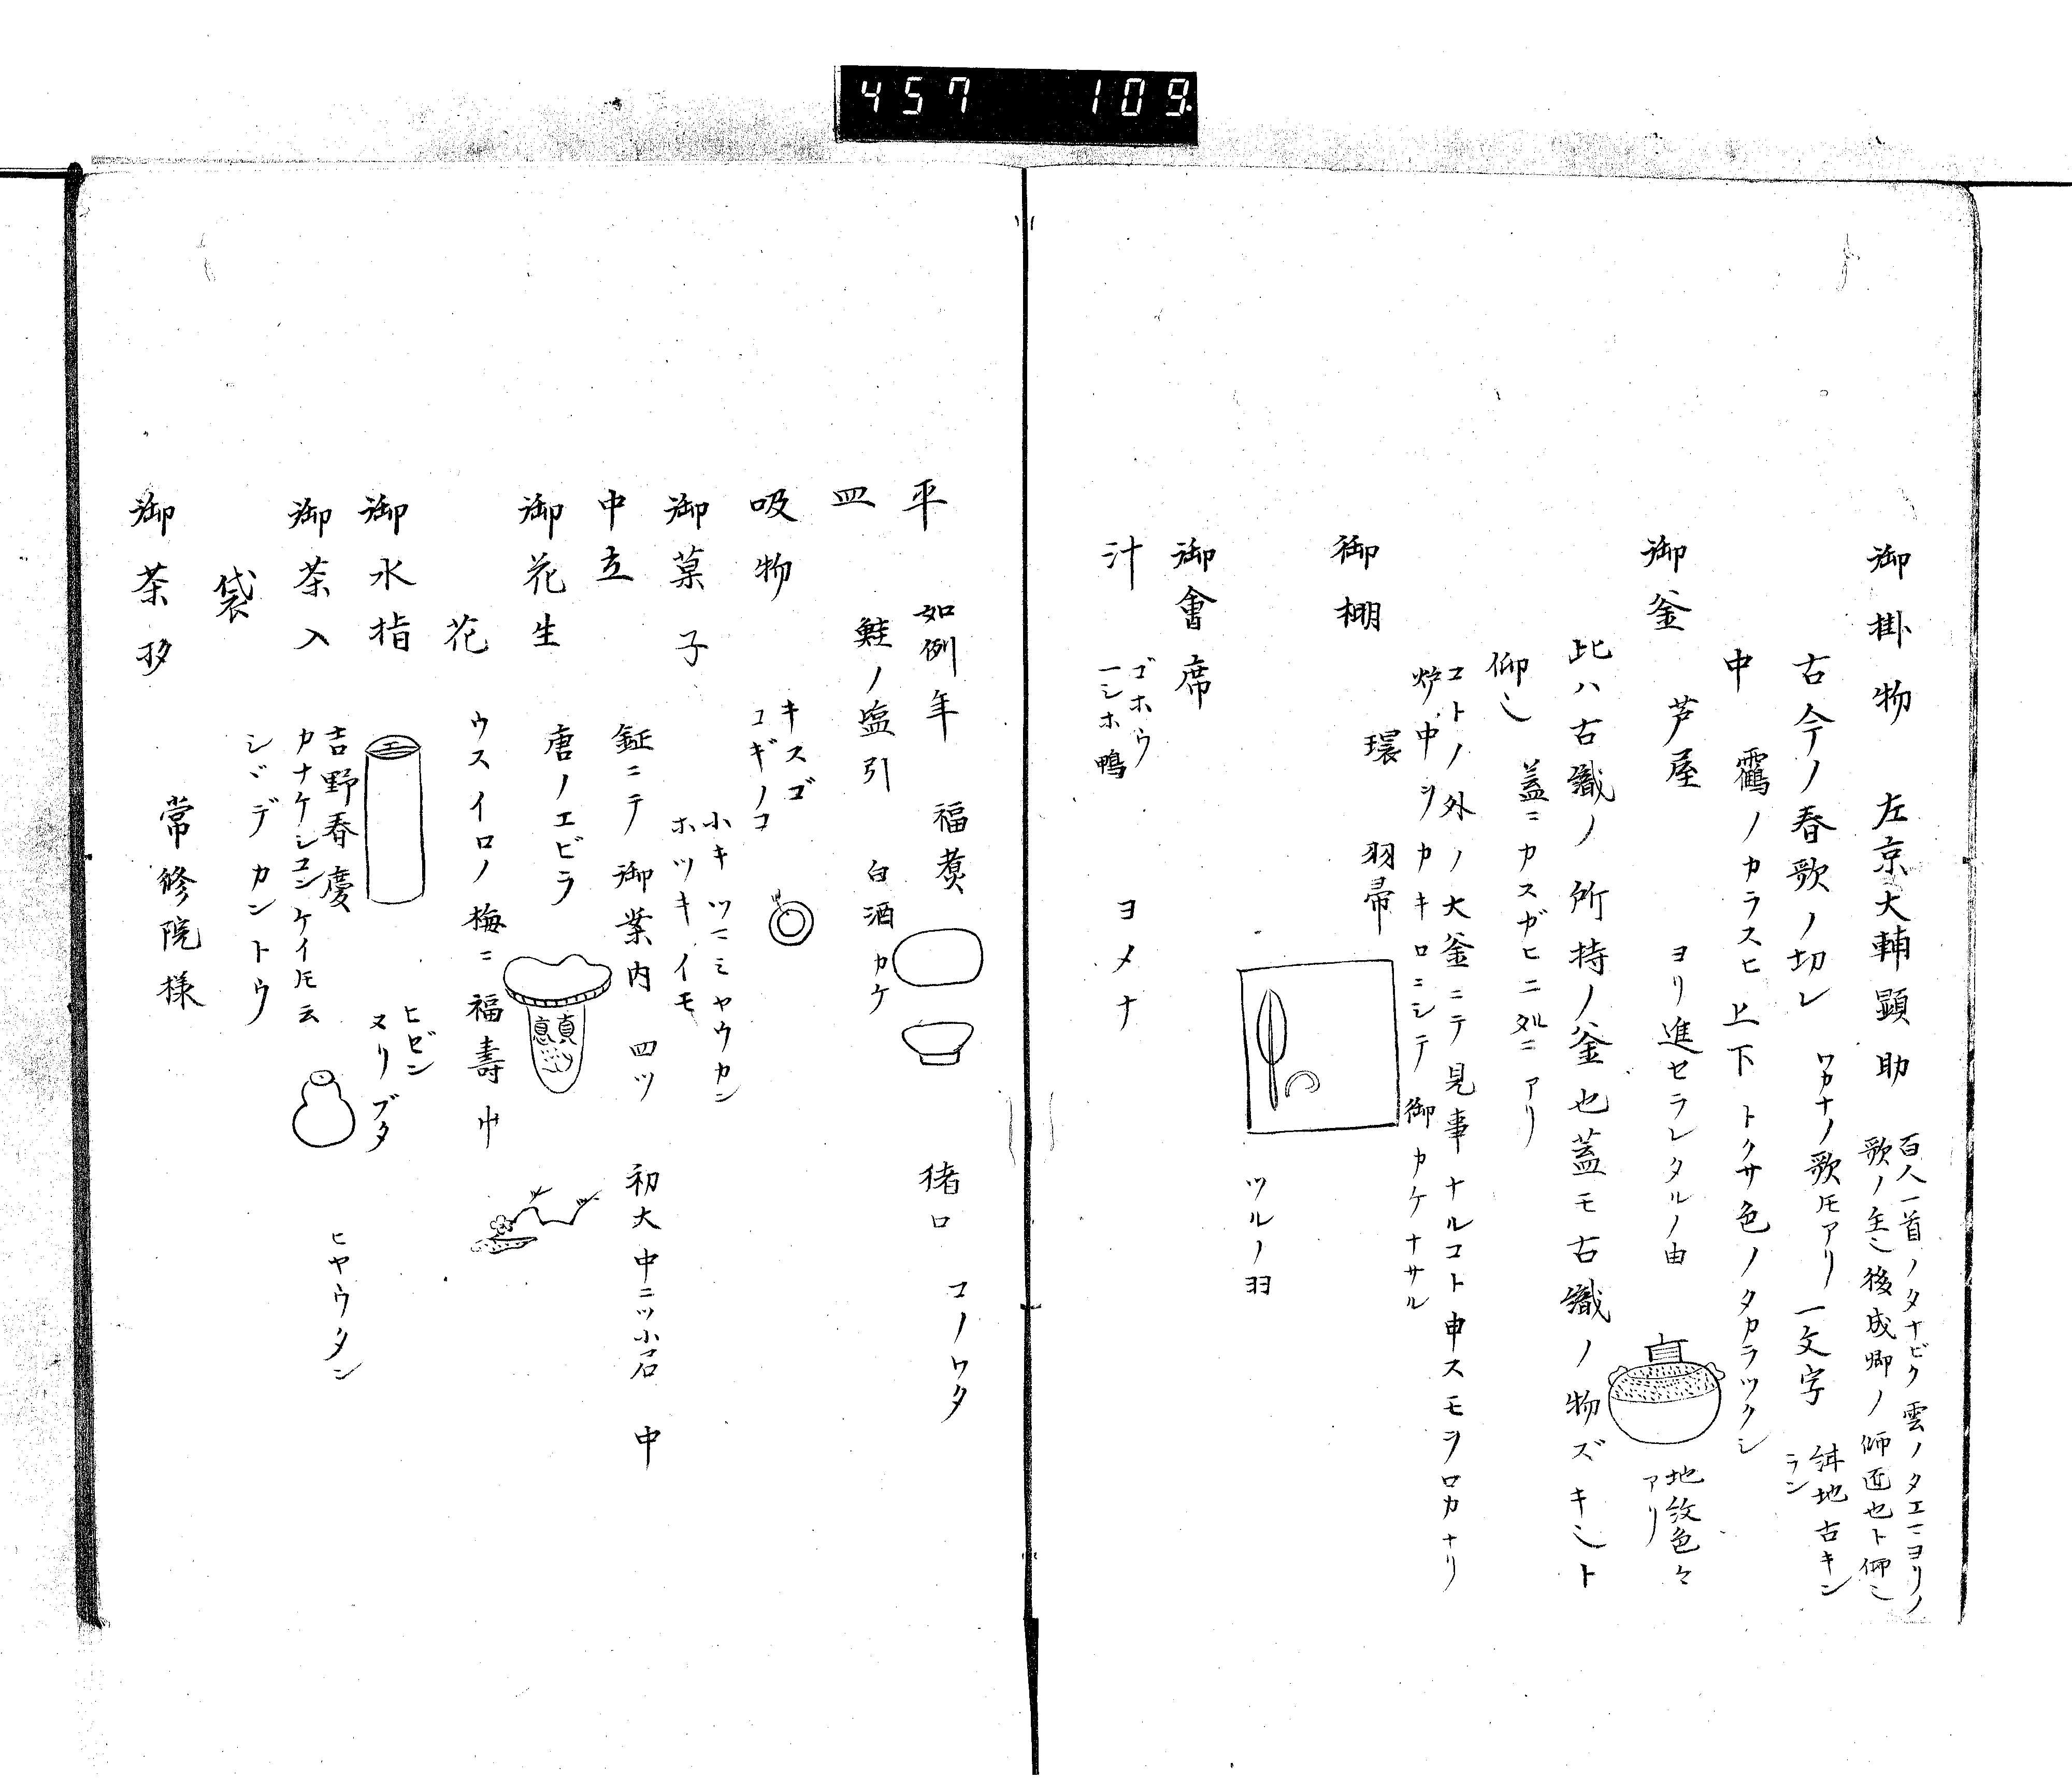 457 109
御掛物 左京大輔顕助
百人一首ノタナビク雲ノタエマヨリノ
歌ノ主〻後成卿ノ師匠也ト仰〻
古今ノ春歌ノ切レ ワカナノ歌𪜈アリ 一文字 地古キン
ラン
中 靏ノカラスヒ 上下 トクサ色ノタカラツクシ
御釜 芦屋 ヨリ進セラレタルノ由
地紋色々
アリ
此ハ古織ノ所持ノ釜也蓋モ古織ノ物ズキ〻ト
仰〻 蓋ニカスガヒニ処ニアリ
コトノ外ノ大釜ニテ見事ナルコト申スモヲロカナリ
炉中ヲカキロニシテ御カケナサル
御棚 環 羽帚
ツルノ羽
御會席
汁 ゴホウ
一シホ鴨 ヨメナ
平 如例年 福煑 猪口 コノワタ
皿 鮭ノ塩引 白酒カケ
吸物 キスゴ
コギノコ
御菓子 小キツニミヤウカン
ホツキイモ
中立 鉦ニテ御案内 四ツ 初大中ニツ小 中
御花生 唐ノエビラ
花 ウスイロノ梅ニ福壽艸
御水指 ヒゼン
ヌリブタ
御茶入 吉野春慶 ヒヤウタン
カナケシコンケイ𪜈云
袋 シヾデカントウ
御茶杓 常修院様